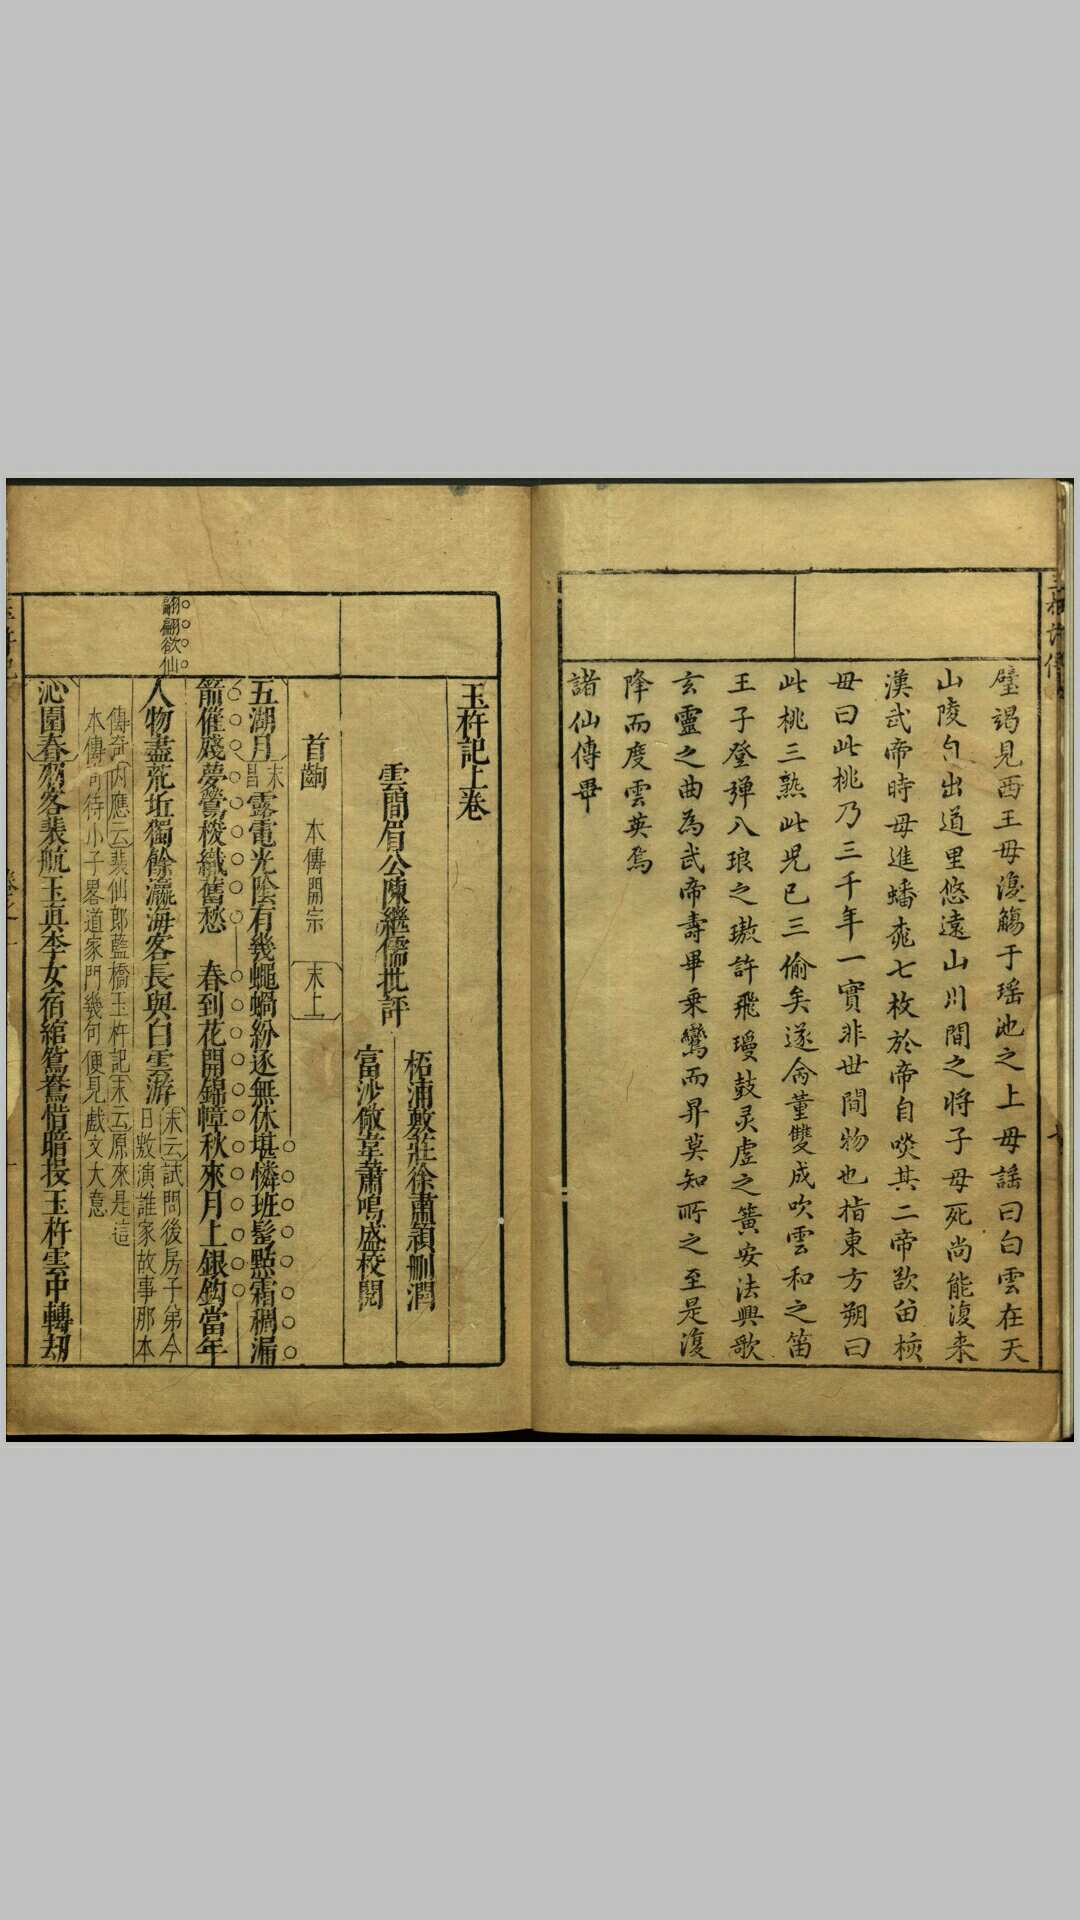 璧謁見西王母復觴于瑶池之上母謡曰白雲在天
山陵自出道里悠遠山川間之将子母死尚能復来
漢武帝時母進蟠桃七枚於帝自啖其二帝欲留核
母曰此桃乃三千年一實非世間物也指東方朔曰
此桃三熟此児已三偷矣遂命董雙成吹雲和之笛
王子登弹八琅之璈許飛瓊鼓灵虚之簧安法興歌
玄靈之曲為武帝壽畢乗鸞而昇莫知所之至是復
降而度雲英焉
諸仙傳畢
玉杵記上卷
柘浦敷莊徐肅穎刪潤
雲間眉公陳繼儒批評
富沙儆韋蕭鳴盛校閱
首齣 本傳開宗 末上
五湖月 末唱 露電光陰有幾蠅蝸紛逐無休堪憐班髩點霜稠漏
箭催殘夢鶯梭織舊愁 春到花開錦幛秋來月上銀鈎當年
翩翩欲仙
人物盡荒坵獨餘瀛海客長與白雲游 末云試問後房子弟今
日敷演誰家故事那本
傳奇內應云裴仙郎藍橋玉杵記末云原來是這
本傳竒待小子畧道家門幾句便見戲文大意
沁園春 客裴航玉真李女宿綰鴛鴦惜暗投玉杵雲中轉刼